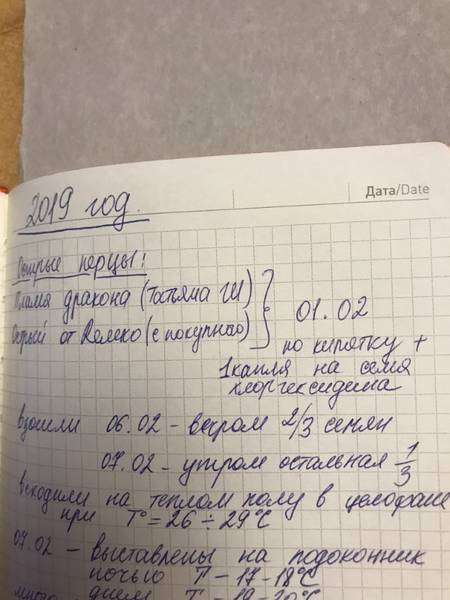 Дата/Date
2019 год.
Острые перцы:
Пламя дракона (Татьяна Ш)
Острый от Велеко (с покупного)
01.02
по кипятку +
1 капля на семя
хлоргексидина
взошли 06.02 - вечером 2/3 семян
07.02 - утром остальная 1/3
выходили на теплом полу в целофане
при T° = 26 ÷ 29°C
07.02 - выставлены на подоконник
ночью T - 17-18°C
днем T - 19-20°C